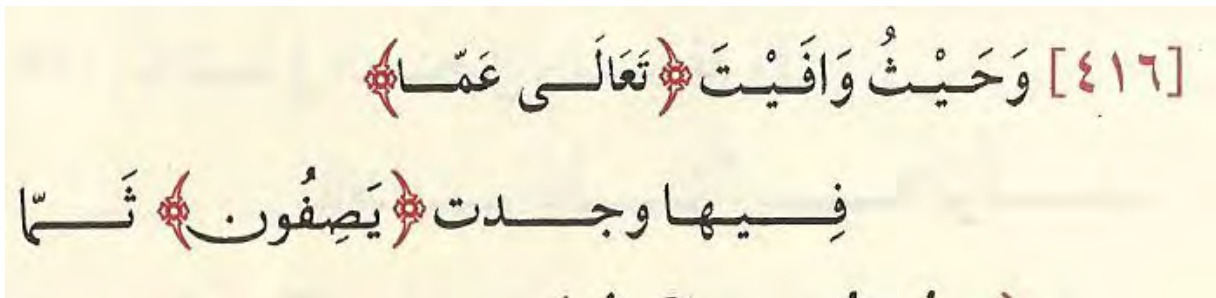 [٤١٦] وَحَيْثُ وَافَيْتَ ﴿تَعَالَى عَمَّا﴾
فِيها وجدت ﴿يَصِفُون﴾ ثَمَّا